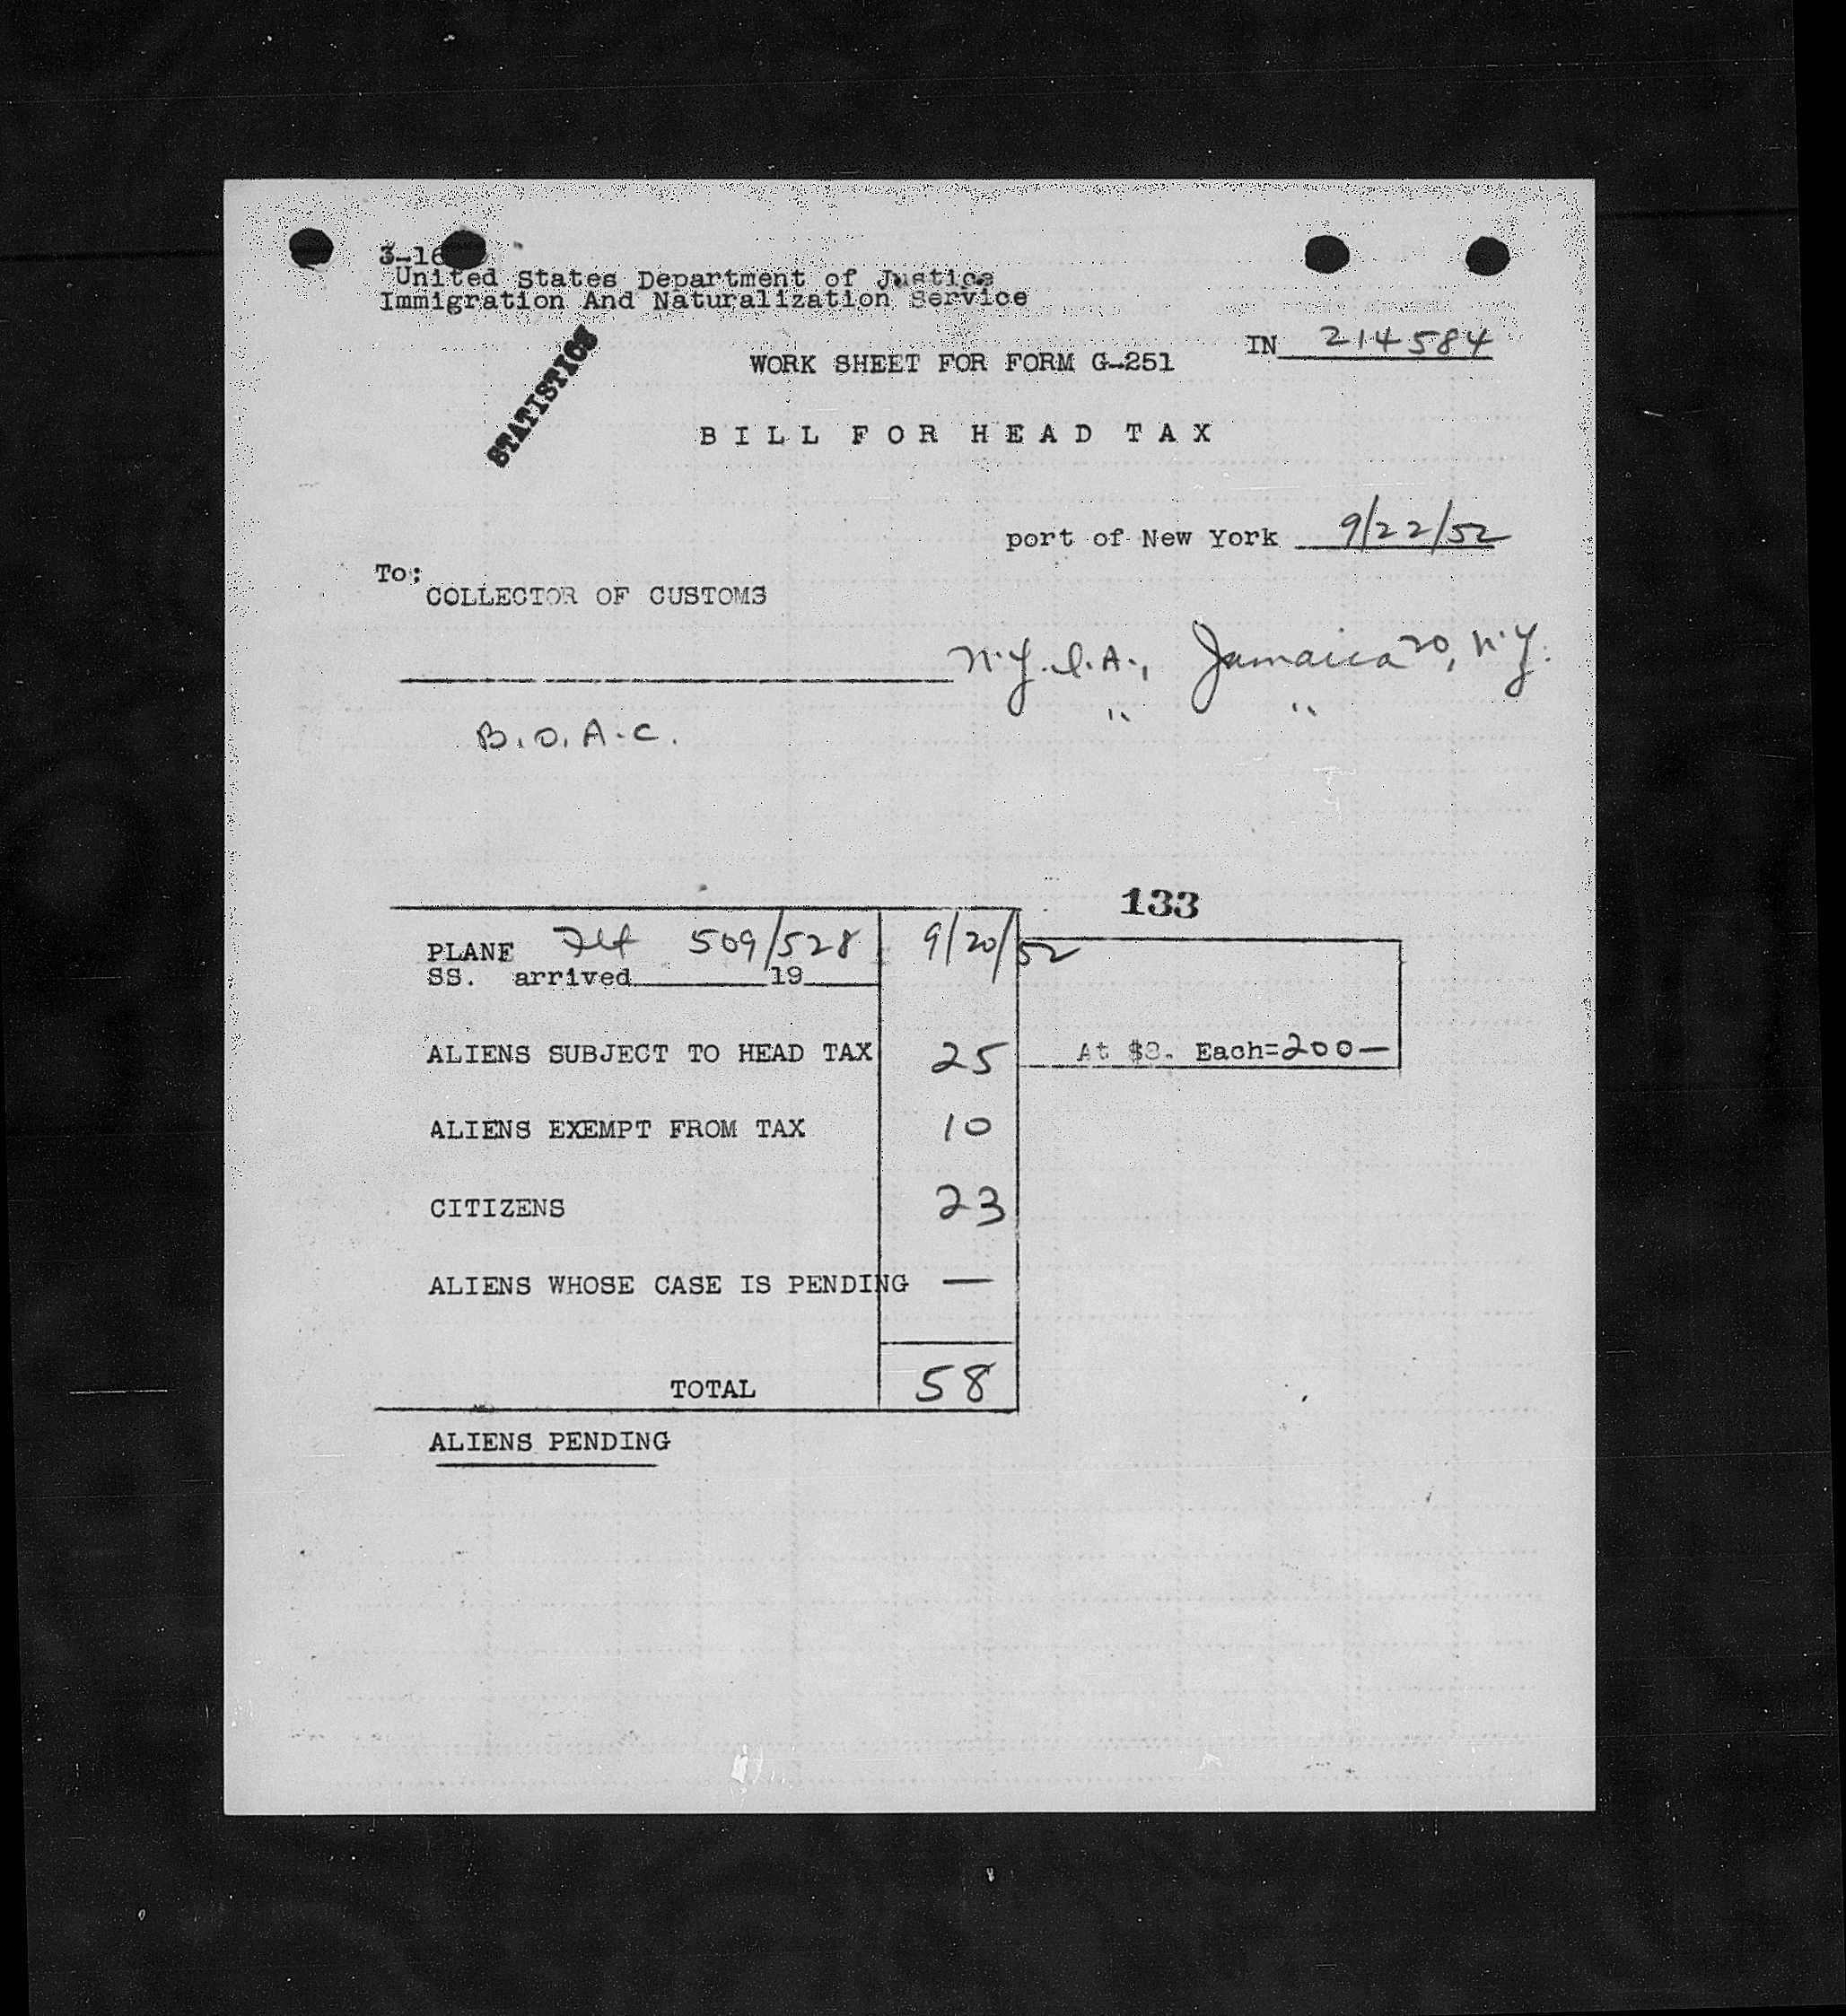 3-16
United States Department of Justice
Immigration And Naturalization Service
STATISTICS
IN 214584
WORK SHEET FOR FORM G-251
BILL FOR HEAD TAX
port of New York 9/22/52
To;
COLLECTOR OF CUSTOMS
N.Y.I.A., Jamaica 20, N.Y.
" "
B.O.A.C.
133
PLANE Flt 509/528 9/20/52
SS. arrived 19
ALIENS SUBJECT TO HEAD TAX 25 At $8. Each=200—
ALIENS EXEMPT FROM TAX 10
CITIZENS 23
ALIENS WHOSE CASE IS PENDING —
TOTAL 58
ALIENS PENDING